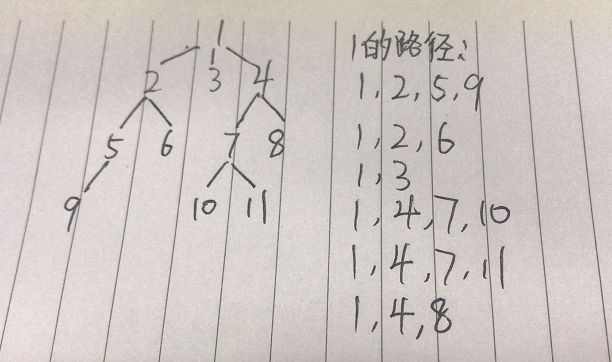 1
2 3 4
5 6 7 8
9 10 11
1的路径:
1,2,5,9
1,2,6
1,3
1,4,7,10
1,4,7,11
1,4,8